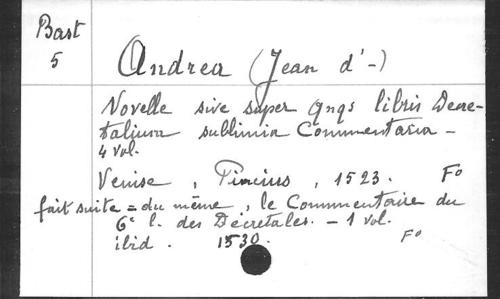 Bast
5
Andrea (Jean d'-)
Novelle sive super qnqs libris Decre-
talium sublimia Commentaria -
4 vol.
Venise, Pincius, 1523. Fº
fait suite = du même, le Commentaire du
6e l. des Décretales. - 1 vol.
ibid. 1530. Fº